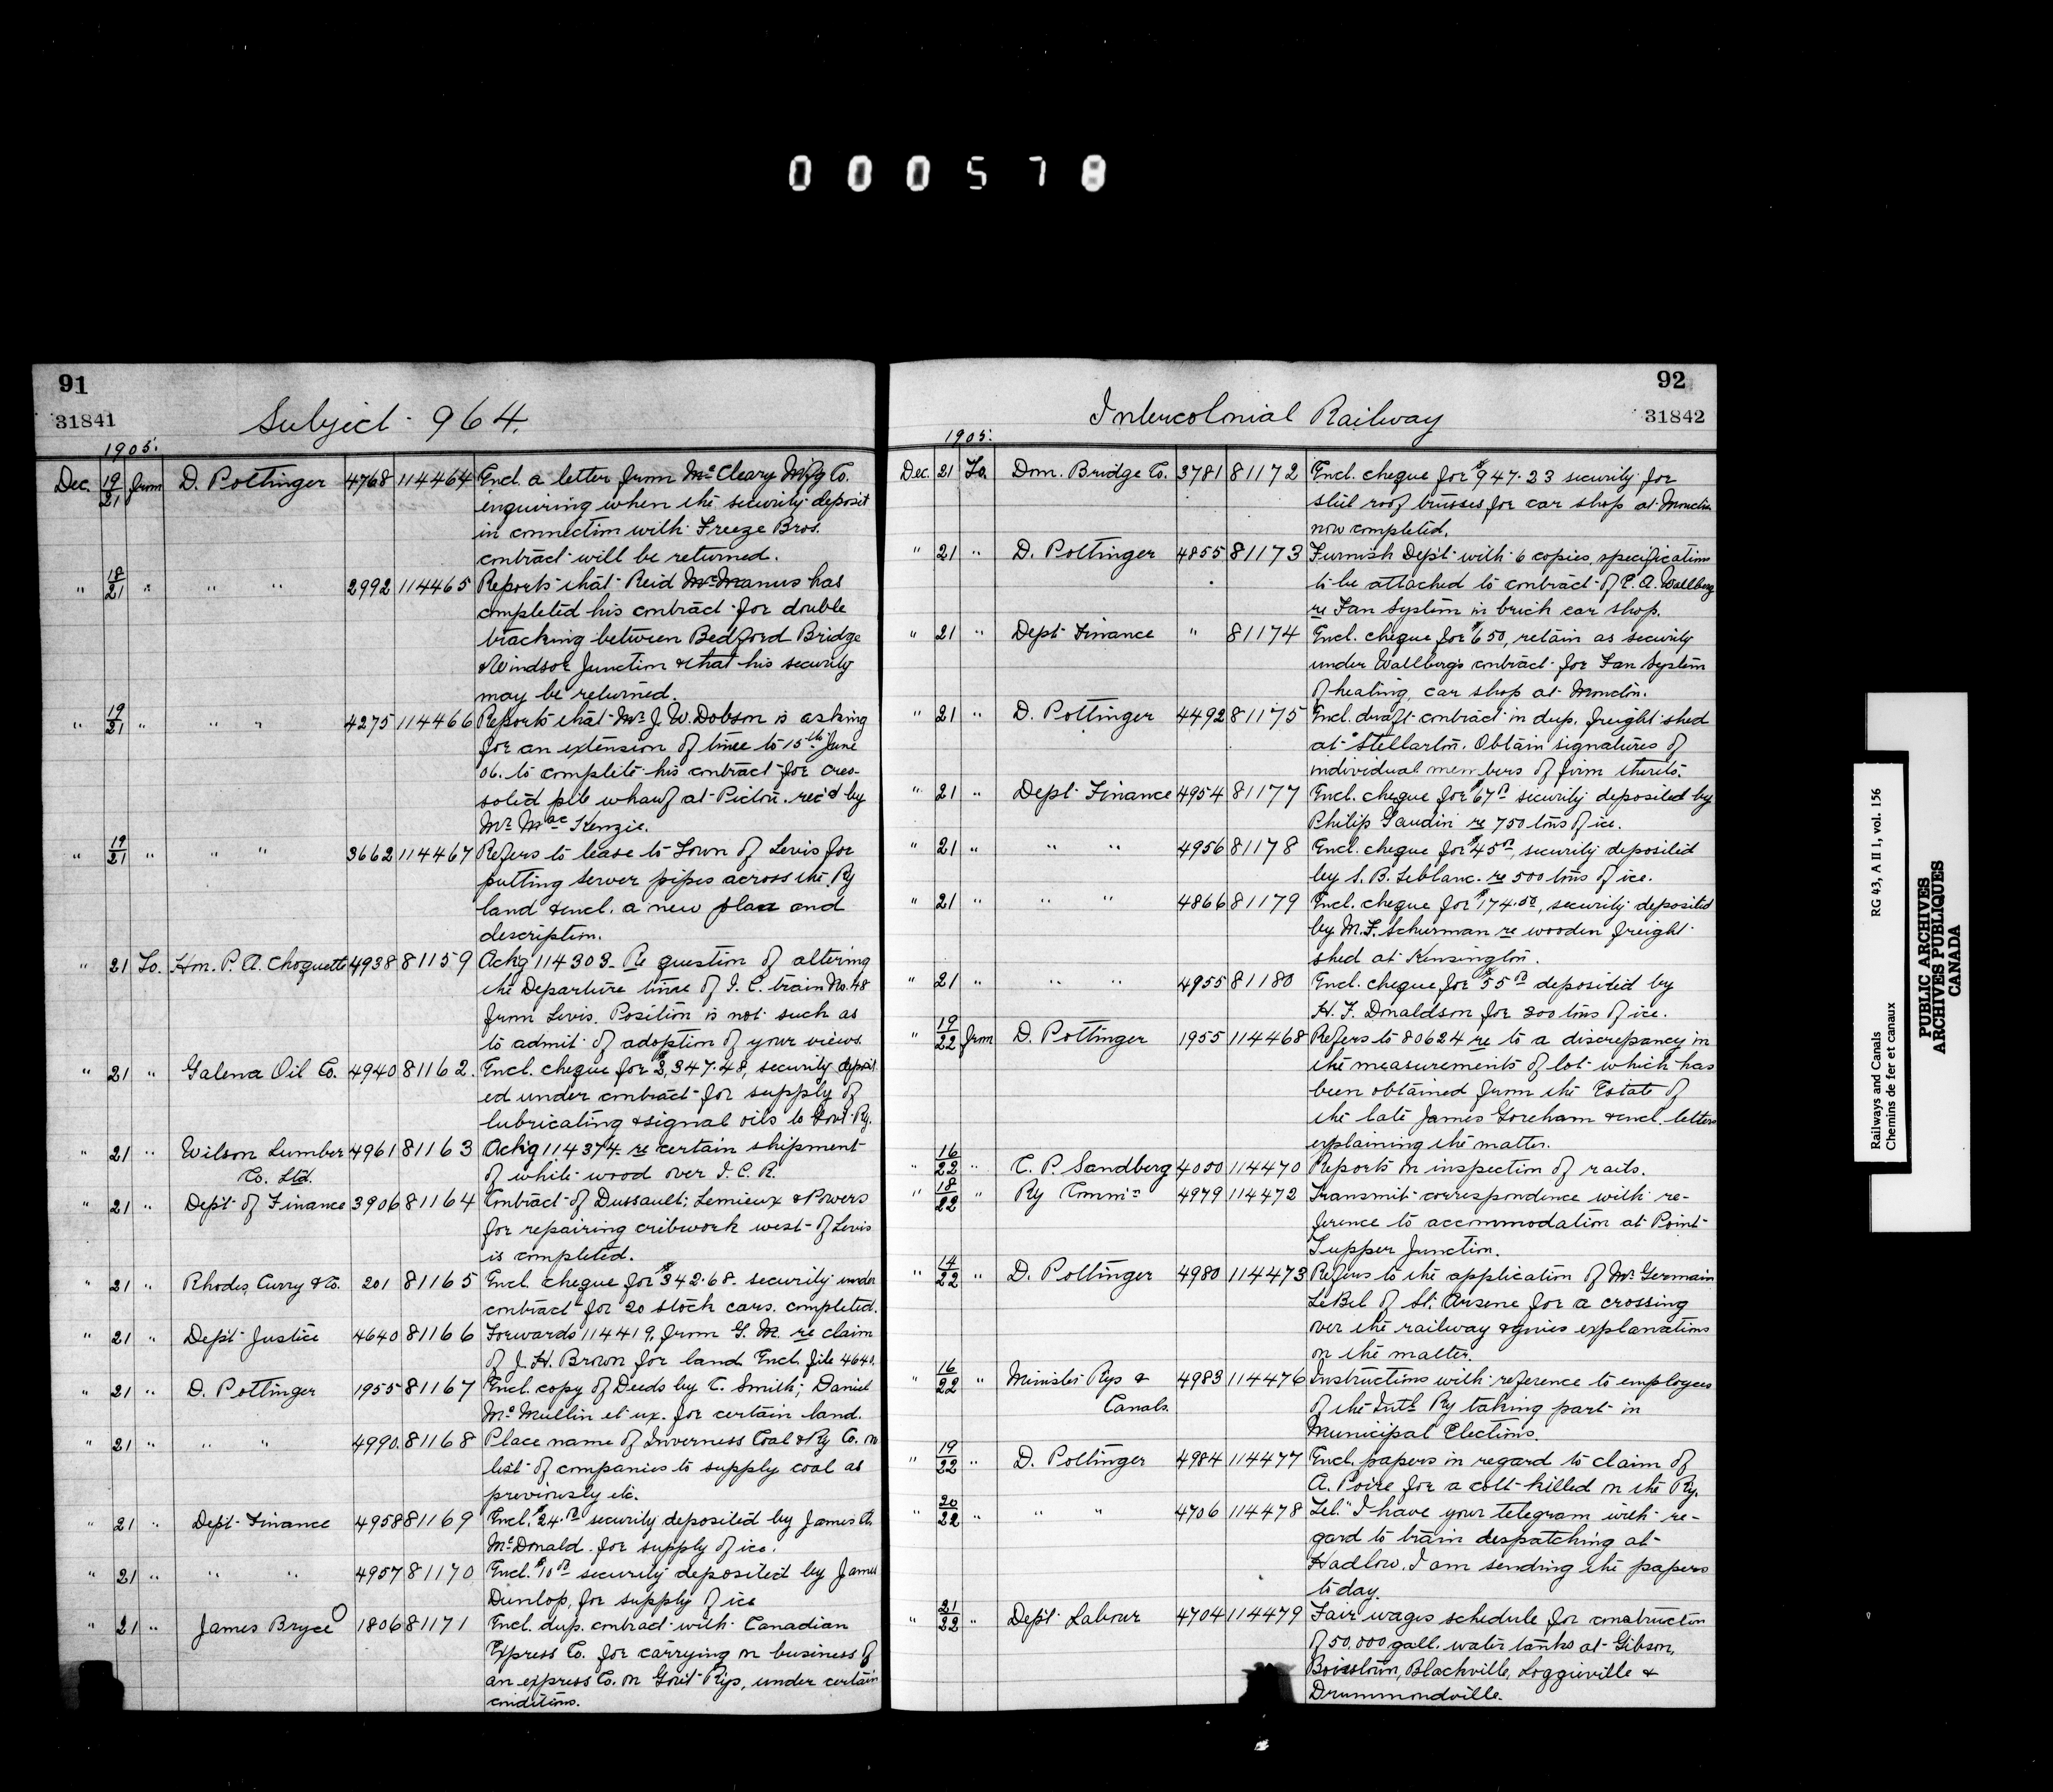 000578
91
31841
Subject 964.
1905.
Dec. 19/21 from D. Pottinger 4768 114464 Encl. a letter from McCleary Mfg Co.
enquiring when the security deposit
in connection with Freeze Bros.
contract will be returned.
" 18/21 " " " 2992 114465 Reports that Reid McManus has
completed his contract for double
tracking between Bedford Bridge
& Windsor Junction & that his security
may be returned.
" 19/21 " " " 4275 114466 Reports that Mr J. W. Dobson is asking
for an extension of time to 15th June
'06. to complete his contract for creo-
soted pile wharf at Pictou. rec'd by
Mr MacKenzie.
" 19/21 " " " 3662 114467 Refers to lease to Town of Levis for
putting sewer pipes across the Ry
land & encl. a new plan and
description.
" 21 To. Hon. P. A. Choquette 4938 81159 Ackg 114303. Re question of altering
the Departure time of I. C. train No. 48
from Levis. Position is not such as
to admit of adoption of your views.
" 21 " Galena Oil Co. 4940 81162. Encl. cheque for $3,347.48, security deposit
ed under contract for supply of
lubricating & signal oils to Govt Ry.
" 21 " Wilson Lumber 4961 81163 Ack'g 114374 re certain shipment
Co. Ltd. of white wood over I. C. R.
" 21 " Dept of Finance 3906 81164 Contract of Dussault; Lemieux & Powers
for repairing cribwork west of Levis
is completed.
" 21 " Rhodes, Curry & Co. 201 81165 Encl. cheque for $342.68. security under
contract for 20 stock cars. completed.
" 21 " Dep't Justice 4640 81166 Forwards 114419, from G. M. re claim
of J. H. Brown for land. Encl. file 4640.
" 21 " D. Pottinger 1955 81167 Encl. copy of Deeds by C. Smith; Daniel
McMullin et ux. for certain land.
" 21 " " " 4990. 81168 Place name of Inverness Coal & Ry Co. on
list of companies to supply coal as
previously etc.
" 21 " Dept Finance 4958 81169 Encl. $24.00 security deposited by James A.
McDonald for supply of ice.
" 21 " " " 4957 81170 Encl. $10.00 security deposited by James
Dunlop, for supply of ice
" 21 " James Bryce 1806 81171 Encl. dup. contract with Canadian
Express Co. for carrying on business of
an express Co. on Gov't Rys, under certain
conditions.
92
31842
Intercolonial Railway
1905.
Dec. 21 To. Dom. Bridge Co. 3781 81172 Encl. cheque for $947.23 security for
steel roof trusses for car shop at Moncton
now completed.
" 21 " D. Pottinger 4855 81173 Furnish Dep't with 6 copies, specification
to be attached to contract of E. A. Wallberg
re Fan System in brick car shop.
" 21 " Dept Finance " 81174 Encl. cheque for $650, retain as security
under Wallberg's contract for Fan System
of heating, car shop at Moncton.
" 21 " D. Pottinger 4492 81175 Encl. draft contract in dup. freight shed
at Stellarton. Obtain signatures of
individual members of firm thereto.
" 21 " Dept Finance 4954 81177 Encl. cheque for $67.00 security deposited by
Philip Gaudin re 750 tons of ice.
" 21 " " " 4956 81178 Encl. cheque for $45.00, security deposited
by S. B. Leblanc. re 500 tons of ice.
" 21 " " " 4866 81179 Encl. cheque for $174.50, security deposited
by M. F. Schurman re wooden freight
shed at Kensington.
" 21 " " " 4955 81180 Encl. cheque for $55.00 deposited by
H. F. Donaldson for 300 tons of ice.
" 19/22 from D. Pottinger 1955 114468 Refers to 80624 re to a discrepancy in
the measurements of lot which has
been obtained from the Estate of
the late James Goreham & encl. letters
explaining the matter.
" 16/22 " C. P. Sandberg 4050 114470 Reports on inspection of rails.
" 18/22 " Ry Comm'n 4979 114472 Transmit correspondence with re-
ference to accommodation at Point
Tupper Junction.
" 14/22 " D. Pottinger 4980 114473 Refers to the application of Mr Germain
LeBel of St. Arsene for a crossing
over the railway & gives explanations
on the matter.
" 16/22 " Minister Rys & 4983 114476 Instructions with reference to employees
Canals. of the Intl Ry taking part in
Municipal Elections.
" 19/22 " D. Pottinger 4984 114477 Encl. papers in regard to claim of
A. Poire for a colt killed on the Ry.
" 20/22 " " " 4706 114478 Tel. "I have your telegram with re-
gard to train despatching at
Hadlow. I am sending the papers
to day.
" 21/22 " Dep't Labour 4704 114479 Fair wages schedule for construction
of 50,000 gall. water tanks at Gibson,
Boiestown, Blackville, Loggieville &
Drummondville.
Railways and Canals RG 43, A II 1, vol. 156
Chemins de fer et canaux
PUBLIC ARCHIVES
ARCHIVES PUBLIQUES
CANADA